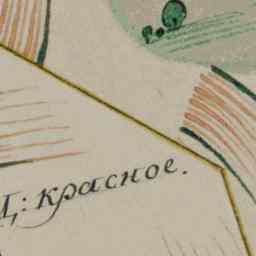 Ц: красное.